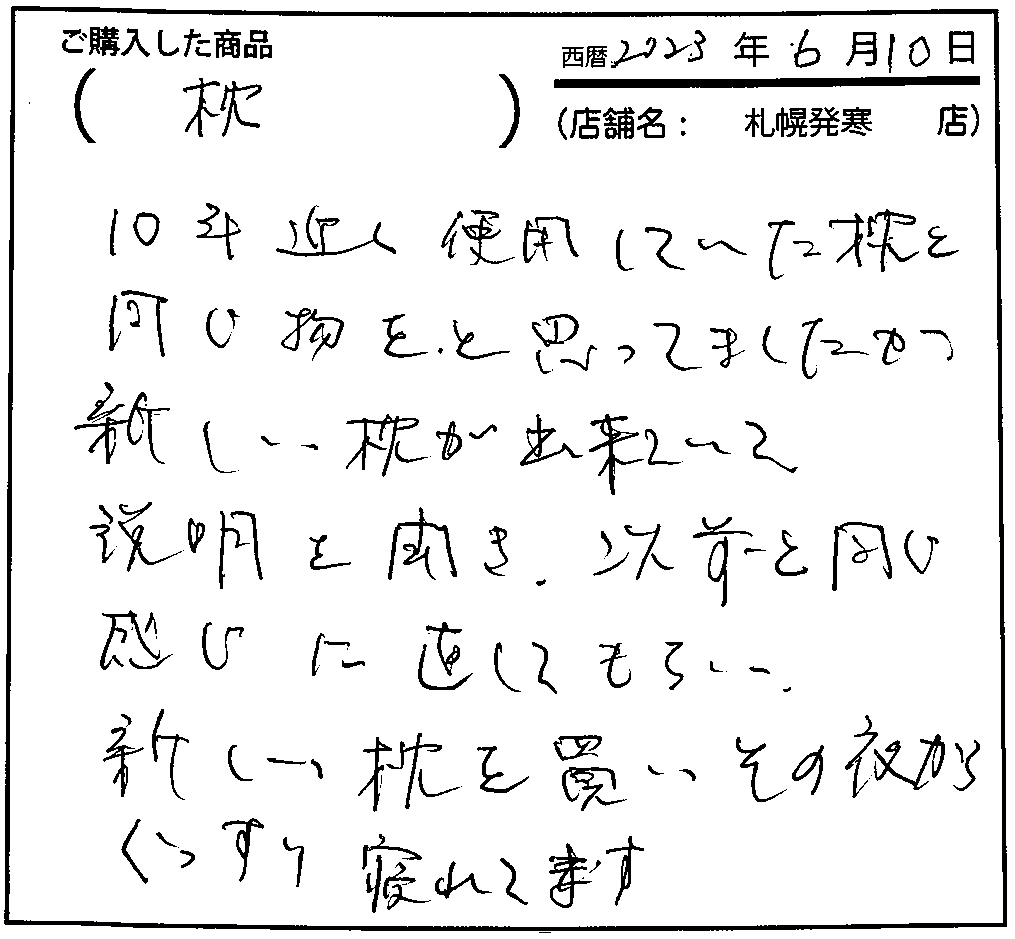 ご購入した商品
西暦 2023 年 6 月 10 日
( 枕 )
(店舗名： 札幌発寒 店)
10年近く使用していた枕と
同じ物を.と思ってましたが
新しい枕が出来ていて
説明を聞き、以前と同じ
感じに直してもらい、
新しい枕を買いその夜から
ぐっすり寝れてます